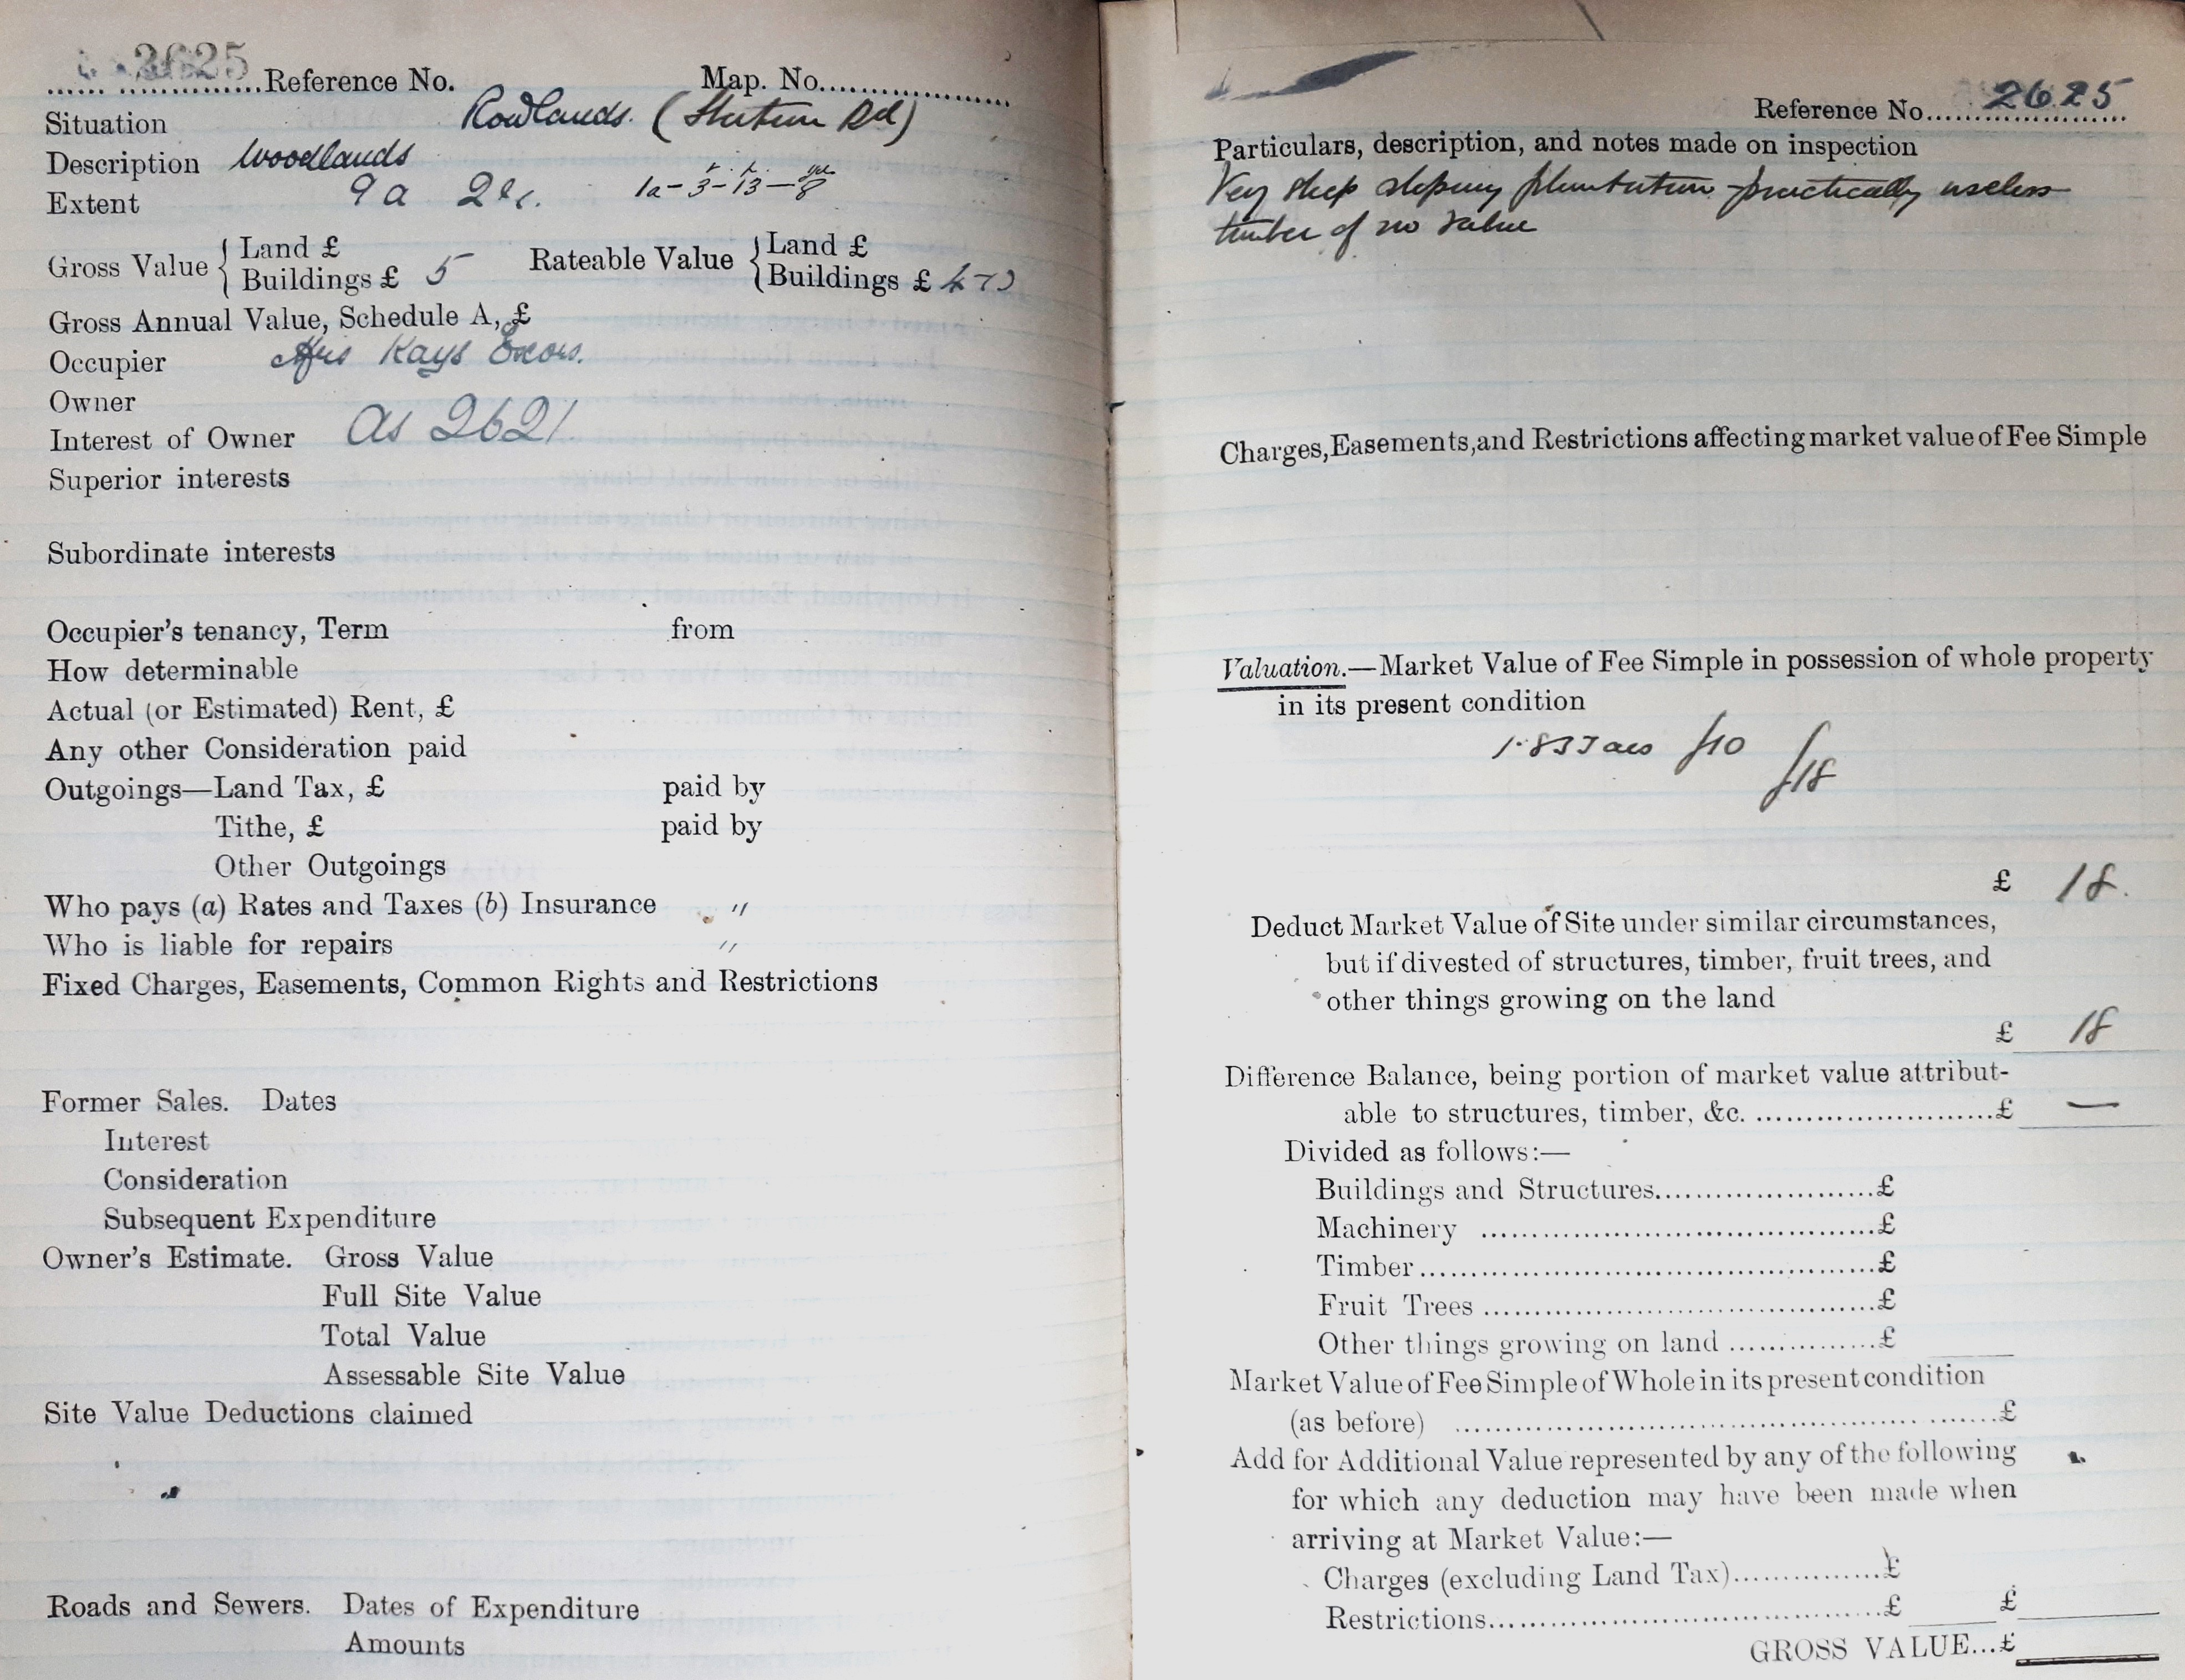 2625 Reference No. Map. No.
Situation Rowlands. (Station Rd)
Description Woodlands
Extent 9a 2r. 1a-3r-13p-8yds
Gross Value { Land £
Buildings £ 5
Rateable Value { Land £
Buildings £ 4
Gross Annual Value, Schedule A, £
Occupier Kays Exors.
Owner
Interest of Owner As 2621.
Superior interests
Subordinate interests
Occupier's tenancy, Term from
How determinable
Actual (or Estimated) Rent, £
Any other Consideration paid
Outgoings—Land Tax, £ paid by
Tithe, £ paid by
Other Outgoings
Who pays (a) Rates and Taxes (b) Insurance "
Who is liable for repairs "
Fixed Charges, Easements, Common Rights and Restrictions
Former Sales. Dates
Interest
Consideration
Subsequent Expenditure
Owner's Estimate. Gross Value
Full Site Value
Total Value
Assessable Site Value
Site Value Deductions claimed
Roads and Sewers. Dates of Expenditure
Amounts
Reference No. 2625
Particulars, description, and notes made on inspection
Very steep sloping plantation - practically useless
timber of no value
Charges, Easements, and Restrictions affecting market value of Fee Simple
Valuation.—Market Value of Fee Simple in possession of whole property
in its present condition
1.833 acs £10
£18
£ 18.
Deduct Market Value of Site under similar circumstances,
but if divested of structures, timber, fruit trees, and
other things growing on the land
£ 18
Difference Balance, being portion of market value attribut-
able to structures, timber, &c. £ —
Divided as follows:—
Buildings and Structures £
Machinery £
Timber £
Fruit Trees £
Other things growing on land £
Market Value of Fee Simple of Whole in its present condition
(as before) £
Add for Additional Value represented by any of the following
for which any deduction may have been made when
arriving at Market Value:—
Charges (excluding Land Tax) £
Restrictions £ £
GROSS VALUE...£